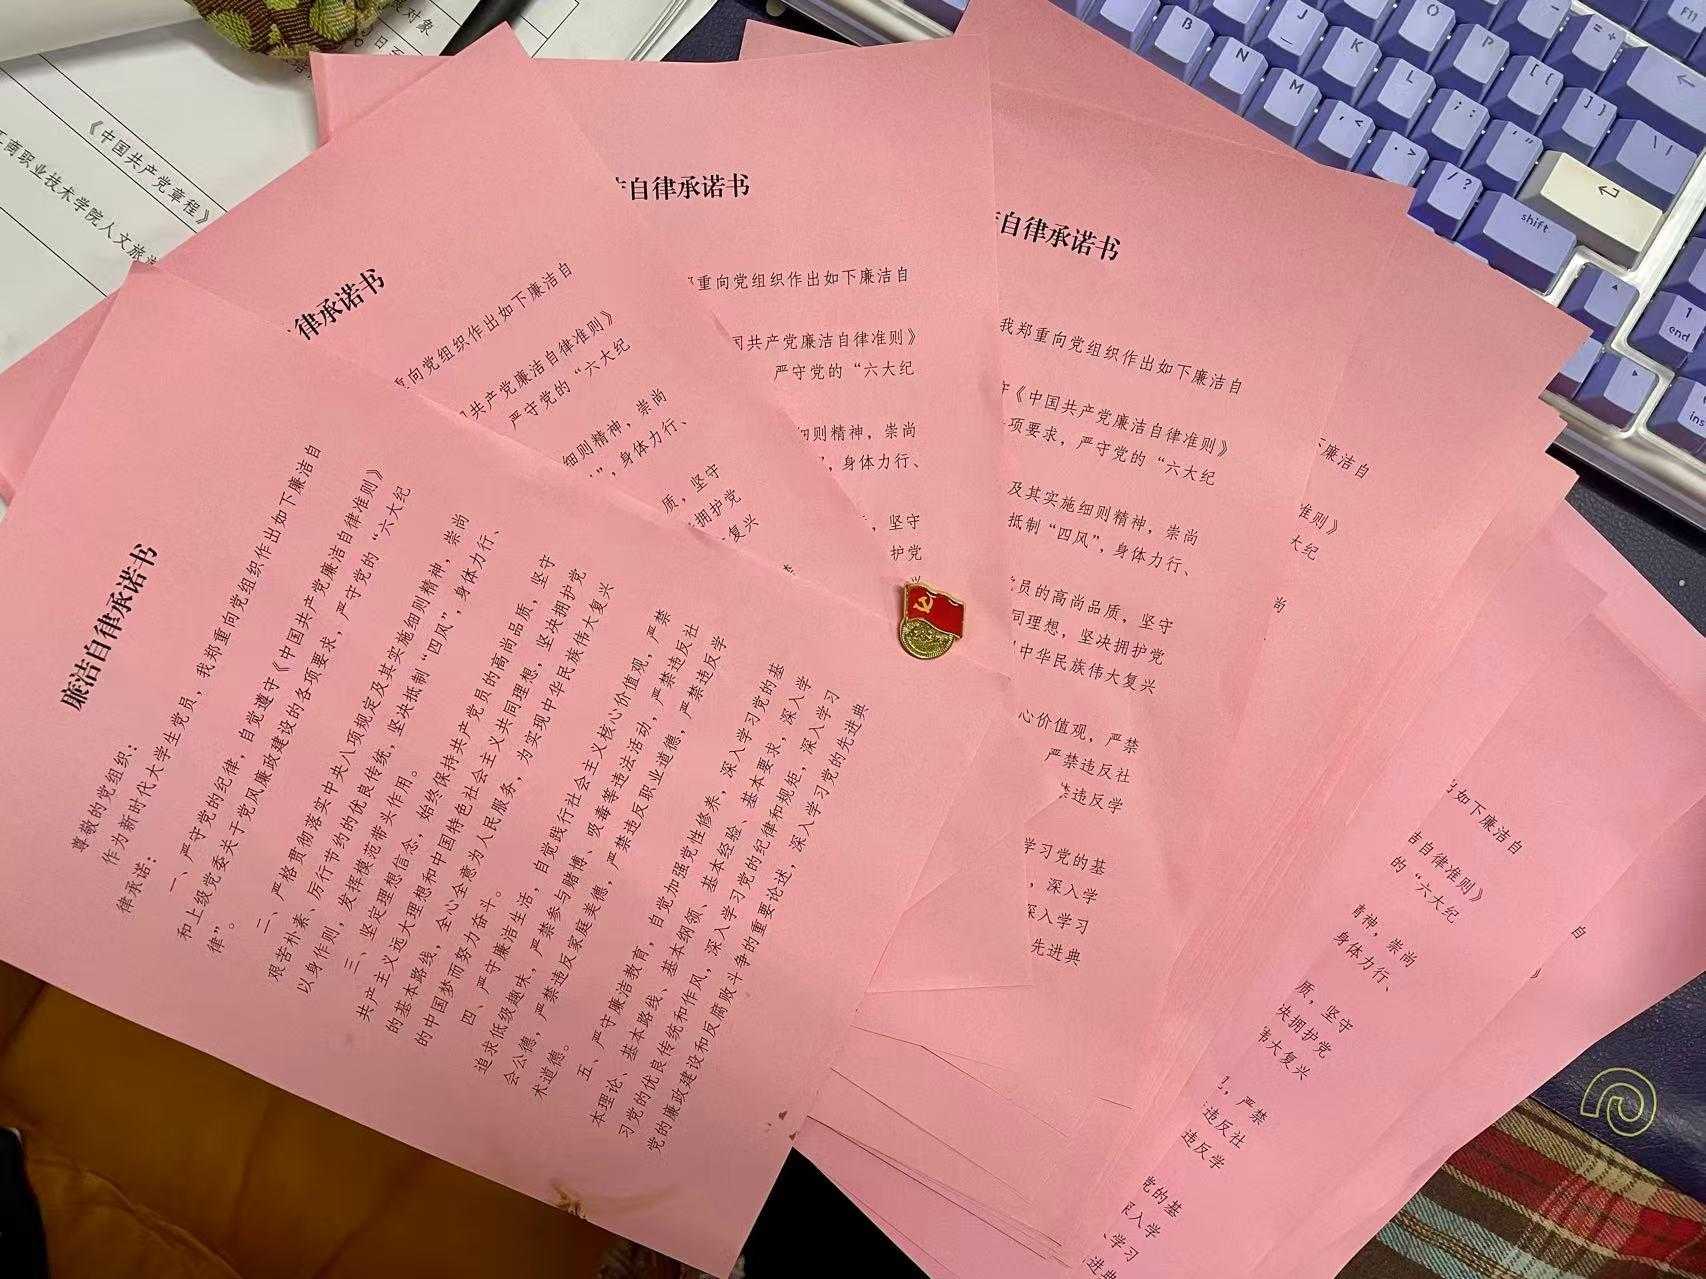 廉洁自律承诺书
尊敬的党组织：
作为新时代大学生党员，我郑重向党组织作出如下廉洁自
律承诺：
一、严守党的纪律，自觉遵守《中国共产党廉洁自律准则》
和上级党委关于党风廉政建设的各项要求，严守党的“六大纪
律”。
二、严格贯彻落实中央八项规定及其实施细则精神，崇尚
艰苦朴素、厉行节约的优良传统，坚决抵制“四风”，身体力行、
以身作则，发挥模范带头作用。
三、坚定理想信念，始终保持共产党员的高尚品质，坚守
共产主义远大理想和中国特色社会主义共同理想，坚决拥护党
的基本路线，全心全意为人民服务，为实现中华民族伟大复兴
的中国梦而努力奋斗。
四、严守廉洁生活，自觉践行社会主义核心价值观，严禁
追求低级趣味，严禁参与赌博、吸毒等违法活动，严禁违反社
会公德，严禁违反家庭美德，严禁违反职业道德，严禁违反学
术道德。
五、严守廉洁教育，自觉加强党性修养，深入学习党的基
本理论、基本路线、基本纲领、基本经验、基本要求，深入学
习党的优良传统和作风，深入学习党的纪律和规矩，深入学习
党的廉政建设和反腐败斗争的重要论述，深入学习党的先进典
律承诺书
重向党组织作出如下廉洁自
共产党廉洁自律准则》
严守党的“六大纪
细则精神，崇尚
”，身体力行、
质，坚守
拥护党
复兴
自律承诺书
重向党组织作出如下廉洁自
国共产党廉洁自律准则》
严守党的“六大纪
细则精神，崇尚
，身体力行、
，坚守
护党
自律承诺书
我郑重向党组织作出如下廉洁自
《中国共产党廉洁自律准则》
项要求，严守党的“六大纪
及其实施细则精神，崇尚
抵制“四风”，身体力行、
员的高尚品质，坚守
同理想，坚决拥护党
中华民族伟大复兴
心价值观，严禁
严禁违反社
违反学
学习党的基
，深入学
深入学习
先进典
廉洁自
准则》
大纪
尚
如下廉洁自
洁自律准则》
的“六大纪
精神，崇尚
身体力行、
质，坚守
决拥护党
伟大复兴
，严禁
违反社
违反学
党的基
深入学
、学习
进典
自
》
对象
《中国共产党章程》
商职业技术学院人文旅
B
N
M
J
K
L
O
P
F11
shift
end
ins